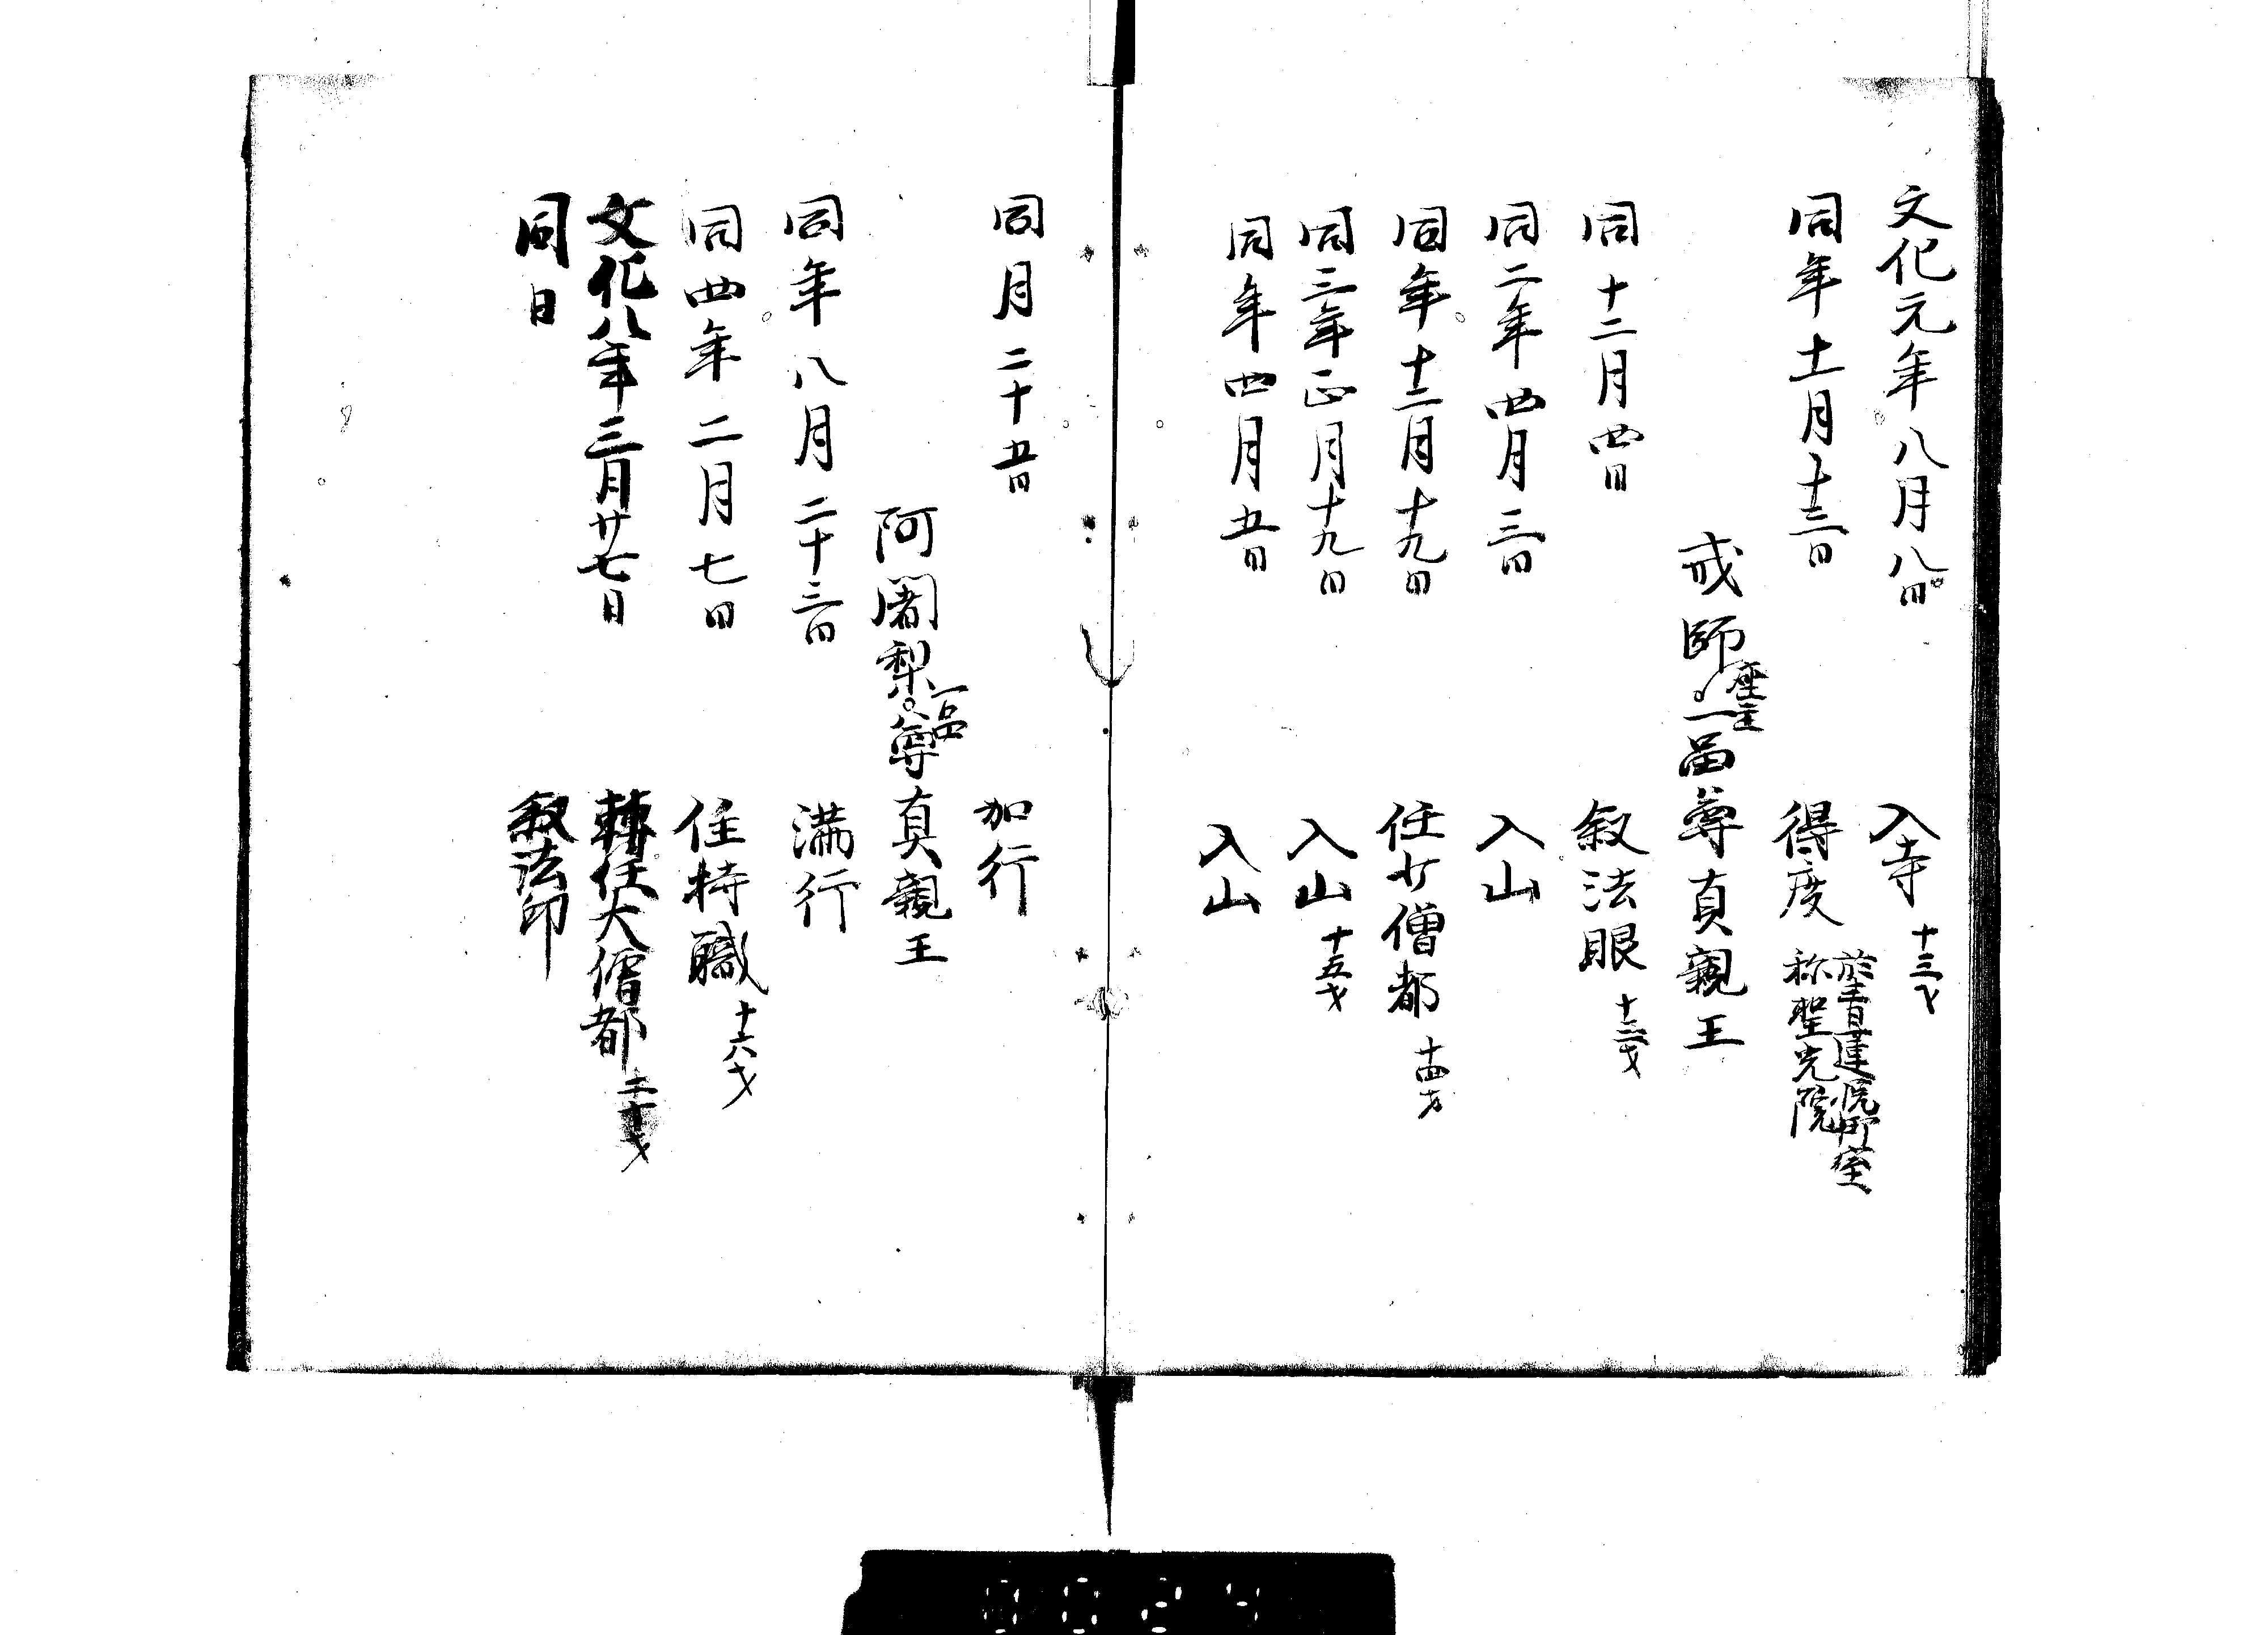 文化元年八月八日 入寺 十三才
同年十一月十三日 得度 於青蓮院御室 称聖光院
戒師座主一品尊真親王
同十二月四日 叙法眼 十三才
同二年四月三日 入山
同年十二月十九日 任少僧都 十四才
同三年正月十九日 入山 十五才
同年四月五日 入山
同月二十五日 加行
阿闍梨一品尊真親王
同年八月二十三日 満行
同四年二月七日 住持職 十六才
文化八年三月廿七日 轉任大僧都 二十才
同日 叙法印
0024